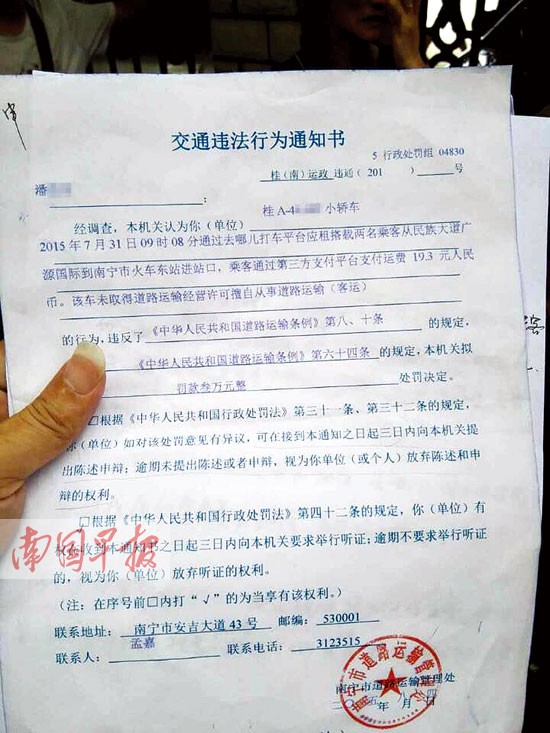 交通违法行为通知书
5 行政处罚组 04830
桂（南）运政 违通（201 ）　号
潘　：
桂A-4 小轿车
经调查，本机关认为你（单位）
2015年7月31日09时08分通过去哪儿打车平台应租搭载两名乘客从民族大道广
源国际到南宁市火车东站进站口，乘客通过第三方支付平台支付运费 19.3 元人民
币。该车未取得道路运输经营许可擅自从事道路运输（客运）
的行为，违反了《中华人民共和国道路运输条例》第八、十条 的规定，
《中华人民共和国道路运输条例》第六十四条 的规定，本机关拟
罚款叁万元整 处罚决定。
□根据《中华人民共和国行政处罚法》第三十一条、第三十二条的规定，
你（单位）如对该处罚意见有异议，可在接到本通知之日起三日内向本机关提
出陈述申辩；逾期未提出陈述或者申辩，视为你单位（或个人）放弃陈述和申
辩的权利。
□根据《中华人民共和国行政处罚法》第四十二条的规定，你（单位）有
权在收到本通知书之日起三日内向本机关要求举行听证；逾期不要求举行听证
的，视为你（单位）放弃听证的权利。
（注：在序号前□内打“√”的为当享有该权利。）
联系地址： 南宁市安吉大道43号 邮编： 530001
联系人： 孟嘉 联系电话： 3123515
南宁市道路运输管理处
年 月 日
南国早报